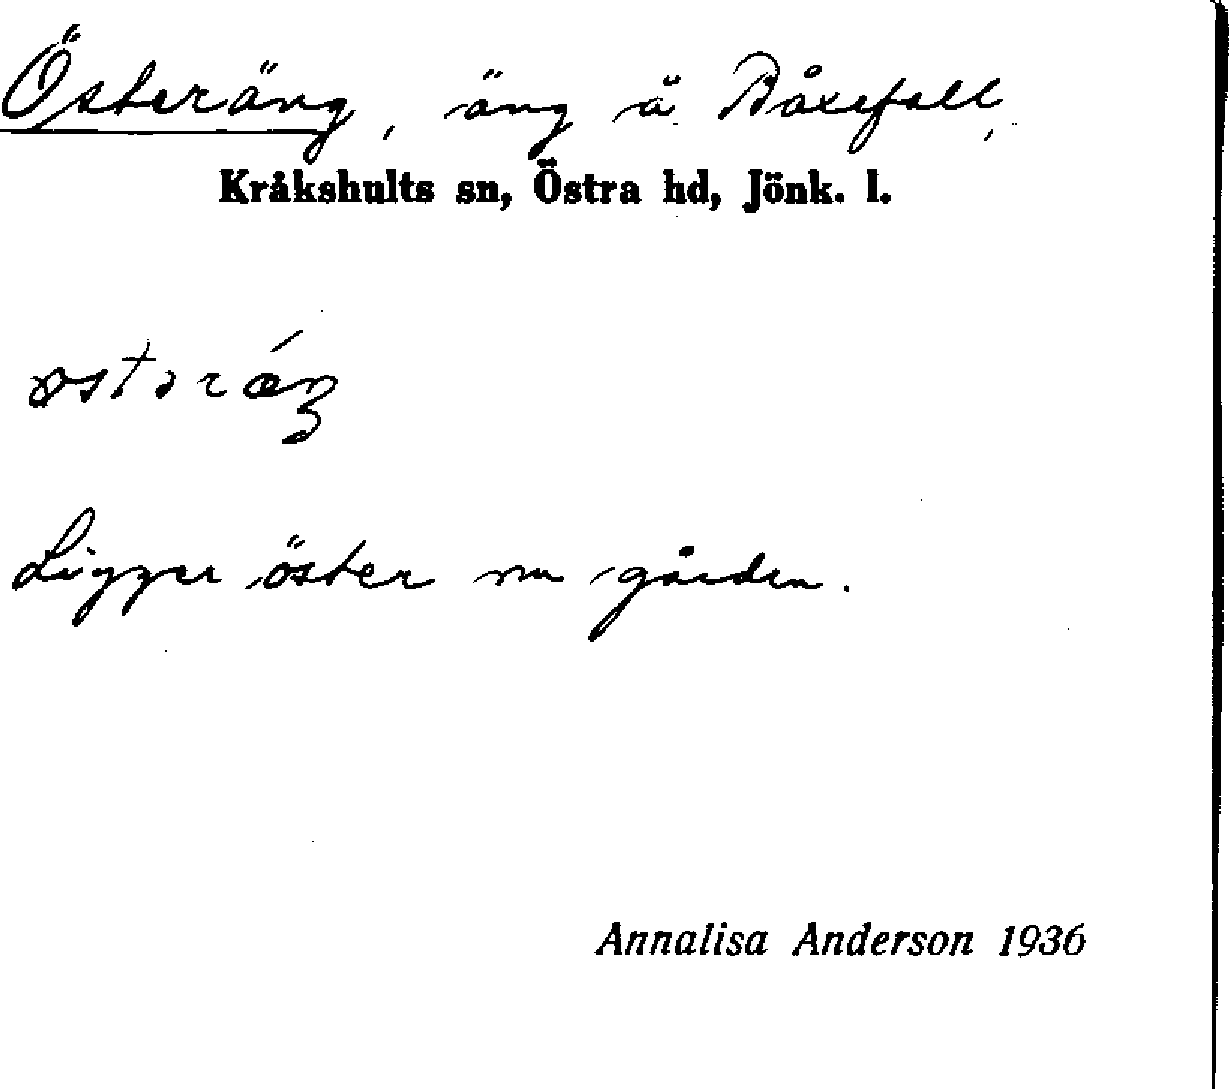 Österäng, äng å Båxefall,
Kråkshults sn, Östra hd, Jönk. l.
Ligger öster om gården.
Annalisa Anderson 1936